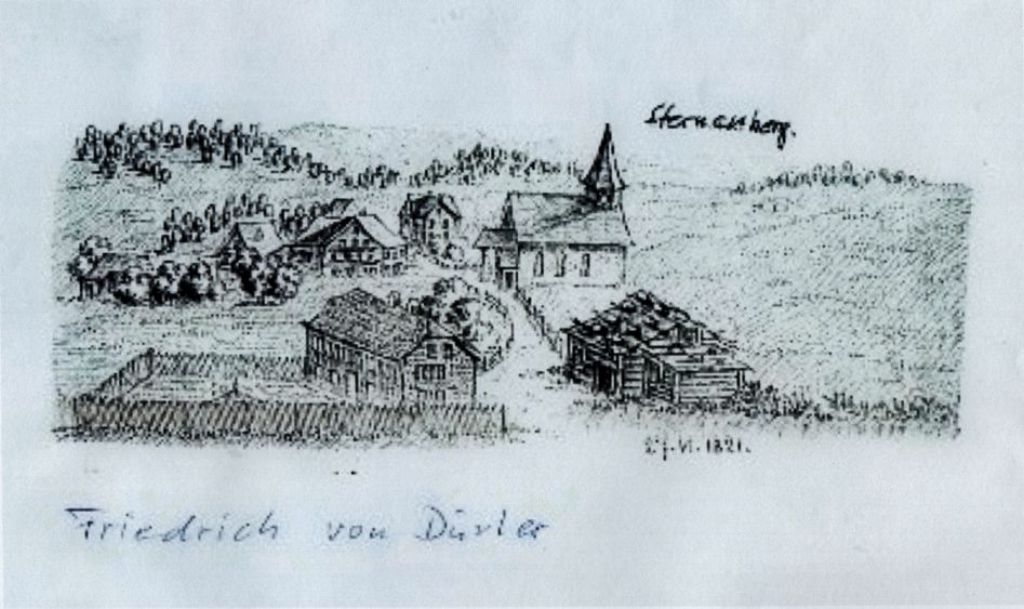 Sternenberg.
27. VI. 1821.
Friedrich von Dürler